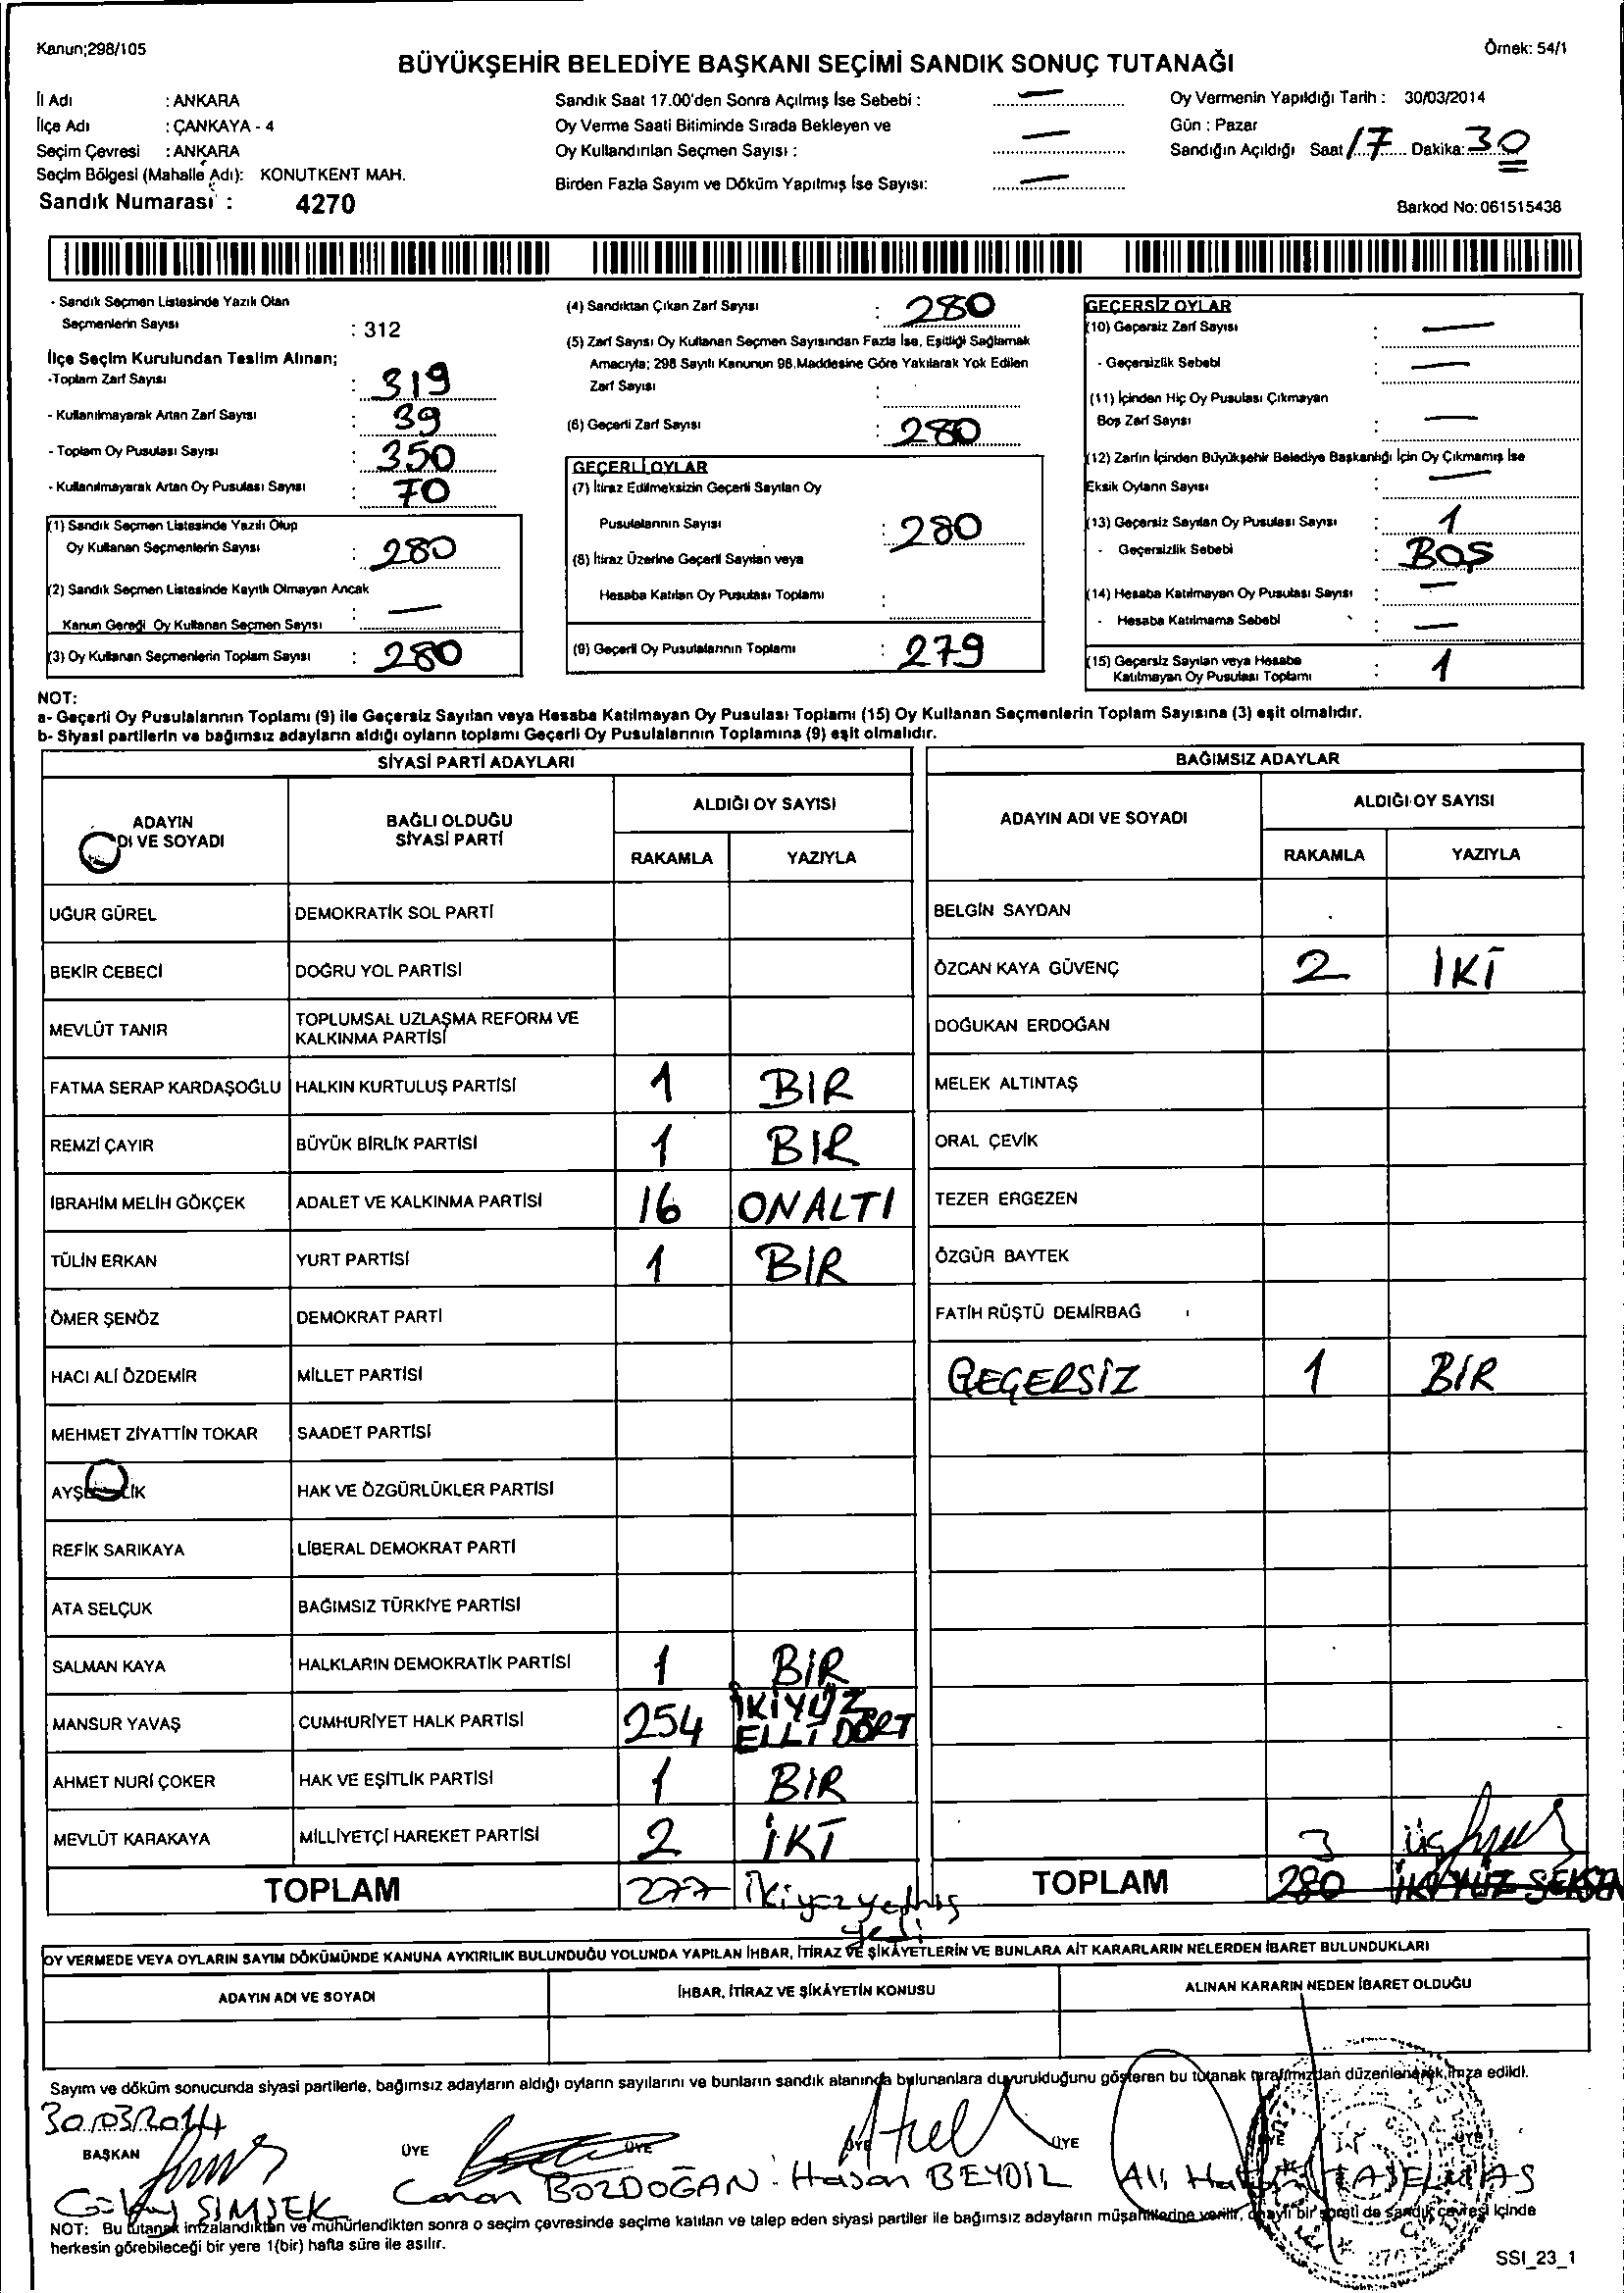 Kanun;298/105
Örnek: 54/1
BÜYÜKŞEHİR BELEDİYE BAŞKANI SEÇİMİ SANDIK SONUÇ TUTANAĞI
İl Adı : ANKARA
İlçe Adı : ÇANKAYA - 4
Seçim Çevresi : ANKARA
Seçim Bölgesi (Mahalle Adı): KONUTKENT MAH.
Sandık Numarası : 4270
Sandık Saat 17.00'den Sonra Açılmış İse Sebebi : —
Oy Verme Saati Bitiminde Sırada Bekleyen ve
Oy Kullandırılan Seçmen Sayısı : —
Birden Fazla Sayım ve Döküm Yapılmış İse Sayısı: —
Oy Vermenin Yapıldığı Tarih : 30/03/2014
Gün : Pazar
Sandığın Açıldığı Saat 17 Dakika: 30
Barkod No:061515438
- Sandık Seçmen Listesinde Yazılı Olan
Seçmenlerin Sayısı : 312
İlçe Seçim Kurulundan Teslim Alınan;
-Toplam Zarf Sayısı : 319
- Kullanılmayarak Artan Zarf Sayısı : 39
- Toplam Oy Pusulası Sayısı : 350
- Kullanılmayarak Artan Oy Pusulası Sayısı : 70
(1) Sandık Seçmen Listesinde Yazılı Olup
Oy Kullanan Seçmenlerin Sayısı : 280
(2) Sandık Seçmen Listesinde Kayıtlı Olmayan Ancak
Kanun Gereği Oy Kullanan Seçmen Sayısı : —
(3) Oy Kullanan Seçmenlerin Toplam Sayısı : 280
(4) Sandıktan Çıkan Zarf Sayısı : 280
(5) Zarf Sayısı Oy Kullanan Seçmen Sayısından Fazla İse, Eşitliği Sağlamak
Amacıyla; 298 Sayılı Kanunun 98.Maddesine Göre Yakılarak Yok Edilen
Zarf Sayısı :
(6) Geçerli Zarf Sayısı : 280
GEÇERLİ OYLAR
(7) İtiraz Edilmeksizin Geçerli Sayılan Oy
Pusulalarının Sayısı : 280
(8) İtiraz Üzerine Geçerli Sayılan veya
Hesaba Katılan Oy Pusulası Toplamı :
(9) Geçerli Oy Pusulalarının Toplamı : 279
GEÇERSİZ OYLAR
(10) Geçersiz Zarf Sayısı : —
- Geçersizlik Sebebi : —
(11) İçinden Hiç Oy Pusulası Çıkmayan
Boş Zarf Sayısı : —
(12) Zarfın İçinden Büyükşehir Belediye Başkanlığı İçin Oy Çıkmamış İse
Eksik Oyların Sayısı : —
(13) Geçersiz Sayılan Oy Pusulası Sayısı : 1
- Geçersizlik Sebebi : BOŞ
(14) Hesaba Katılmayan Oy Pusulası Sayısı : —
- Hesaba Katılmama Sebebi : —
(15) Geçersiz Sayılan veya Hesaba
Katılmayan Oy Pusulası Toplamı : 1
NOT:
a- Geçerli Oy Pusulalarının Toplamı (9) ile Geçersiz Sayılan veya Hesaba Katılmayan Oy Pusulası Toplamı (15) Oy Kullanan Seçmenlerin Toplam Sayısına (3) eşit olmalıdır.
b- Siyasi partilerin ve bağımsız adayların aldığı oyların toplamı Geçerli Oy Pusulalarının Toplamına (9) eşit olmalıdır.
SİYASİ PARTİ ADAYLARI
ADAYIN
DI VE SOYADI
BAĞLI OLDUĞU
SİYASİ PARTİ
ALDIĞI OY SAYISI
RAKAMLA YAZIYLA
UĞUR GÜREL DEMOKRATİK SOL PARTİ
BEKİR CEBECİ DOĞRU YOL PARTİSİ
MEVLÜT TANIR TOPLUMSAL UZLAŞMA REFORM VE
KALKINMA PARTİSİ
FATMA SERAP KARDAŞOĞLU HALKIN KURTULUŞ PARTİSİ 1 BIR
REMZİ ÇAYIR BÜYÜK BİRLİK PARTİSİ 1 BIR
İBRAHİM MELİH GÖKÇEK ADALET VE KALKINMA PARTİSİ 16 ONALTI
TÜLİN ERKAN YURT PARTİSİ 1 BIR
ÖMER ŞENÖZ DEMOKRAT PARTİ
HACI ALİ ÖZDEMİR MİLLET PARTİSİ
MEHMET ZİYATTİN TOKAR SAADET PARTİSİ
HAK VE ÖZGÜRLÜKLER PARTİSİ
REFİK SARIKAYA LİBERAL DEMOKRAT PARTİ
ATA SELÇUK BAĞIMSIZ TÜRKİYE PARTİSİ
SALMAN KAYA HALKLARIN DEMOKRATİK PARTİSİ 1 BİR
MANSUR YAVAŞ CUMHURİYET HALK PARTİSİ 254 İKİYÜZ
ELLİ DÖRT
AHMET NURİ ÇOKER HAK VE EŞİTLİK PARTİSİ 1 BİR
MEVLÜT KARAKAYA MİLLİYETÇİ HAREKET PARTİSİ 2 İKİ
TOPLAM 277 İkiyüzyetmiş
yedi
BAĞIMSIZ ADAYLAR
ADAYIN ADI VE SOYADI
ALDIĞI OY SAYISI
RAKAMLA YAZIYLA
BELGİN SAYDAN
ÖZCAN KAYA GÜVENÇ 2 İKİ
DOĞUKAN ERDOĞAN
MELEK ALTINTAŞ
ORAL ÇEVİK
TEZER ERGEZEN
ÖZGÜR BAYTEK
FATİH RÜŞTÜ DEMİRBAĞ
GEÇERSİZ 1 BİR
3 üç
TOPLAM 280 İKİYÜZ SEKSEN
OY VERMEDE VEYA OYLARIN SAYIM DÖKÜMÜNDE KANUNA AYKIRILIK BULUNDUĞU YOLUNDA YAPILAN İHBAR, İTİRAZ VE ŞİKÂYETLERİN VE BUNLARA AİT KARARLARIN NELERDEN İBARET BULUNDUKLARI
ADAYIN ADI VE SOYADI
İHBAR, İTİRAZ VE ŞİKÂYETİN KONUSU
ALINAN KARARIN NEDEN İBARET OLDUĞU
Sayım ve döküm sonucunda siyasi partilerle, bağımsız adayların aldığı oyların sayılarını ve bunların sandık alanında bulunanlara duyurulduğunu gösteren bu tutanak tarafımızdan düzenlenerek imza edildi.
30.03.2014
BAŞKAN ÜYE ÜYE ÜYE ÜYE ÜYE ÜYE
ŞİMŞEK Canan BOZDOĞAN Hasan BEYDİL Ali
NOT: Bu tutanak imzalandıktan ve mühürlendikten sonra o seçim çevresinde seçime katılan ve talep eden siyasi partiler ile bağımsız adayların müşahitlerine verilir, onaylı bir sureti de sandık çevresi içinde
herkesin görebileceği bir yere 1(bir) hafta süre ile asılır.
SSI_23_1